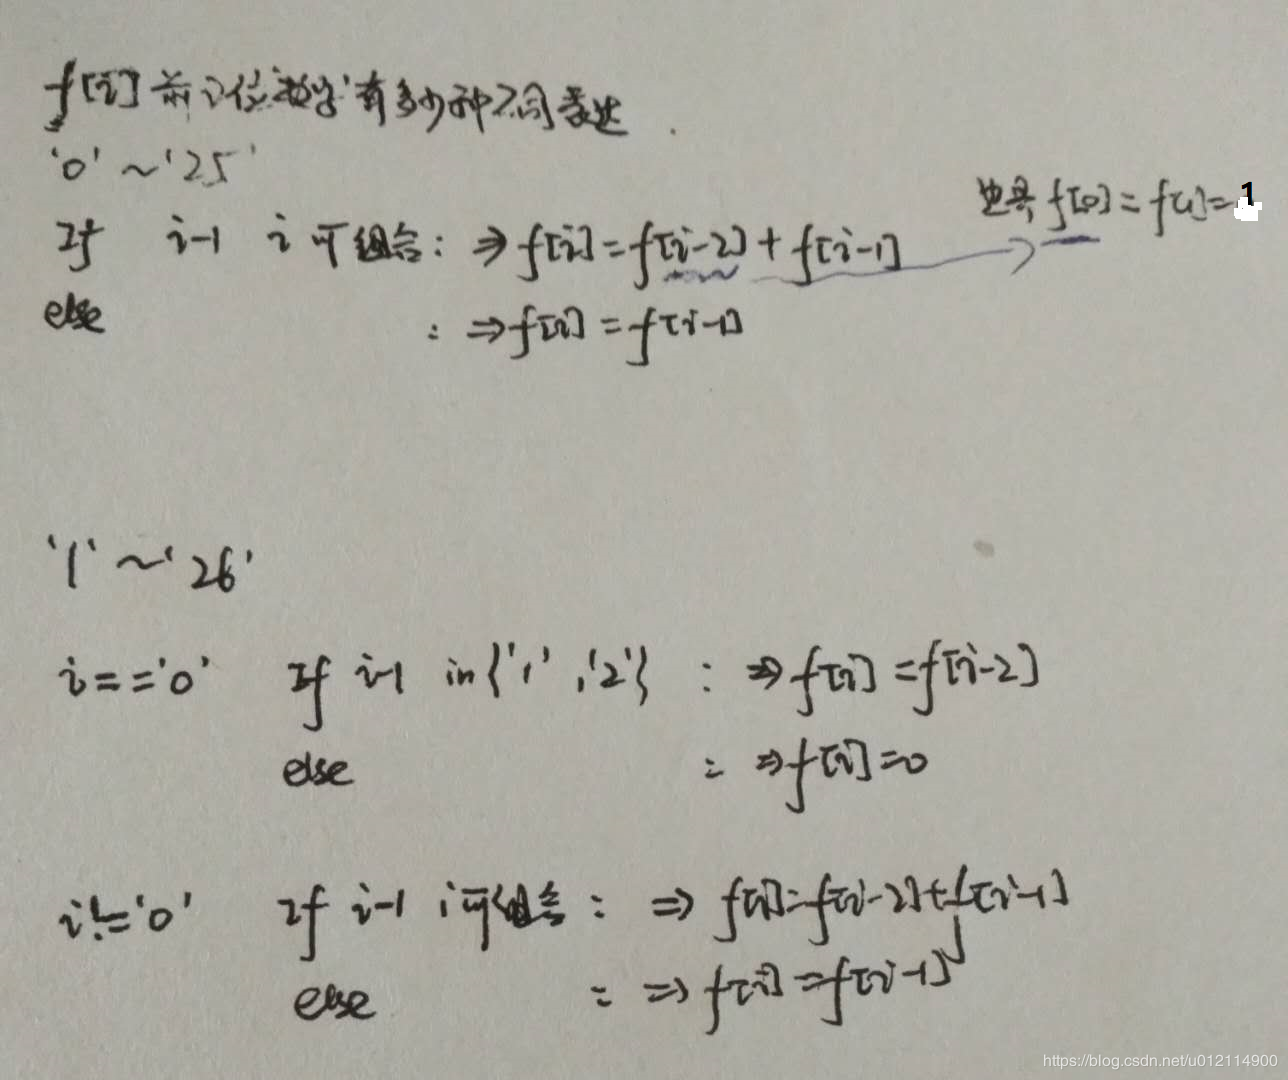 f[i] 前i位数字有多少种不同表达
'0' ~ '25'
If i-1 i 可组合: ⇒ f[i] = f[i-2] + f[i-1] → f[0] = f[1] = 1
else : ⇒ f[i] = f[i-1]
'1' ~ '26'
i=='0' If i-1 in {'1','2'} : ⇒ f[i] = f[i-2]
else : ⇒ f[i] = 0
i!='0' If i-1 i 可组合: ⇒ f[i] = f[i-2] + f[i-1]
else : ⇒ f[i] = f[i-1]
https://blog.csdn.net/u012114900